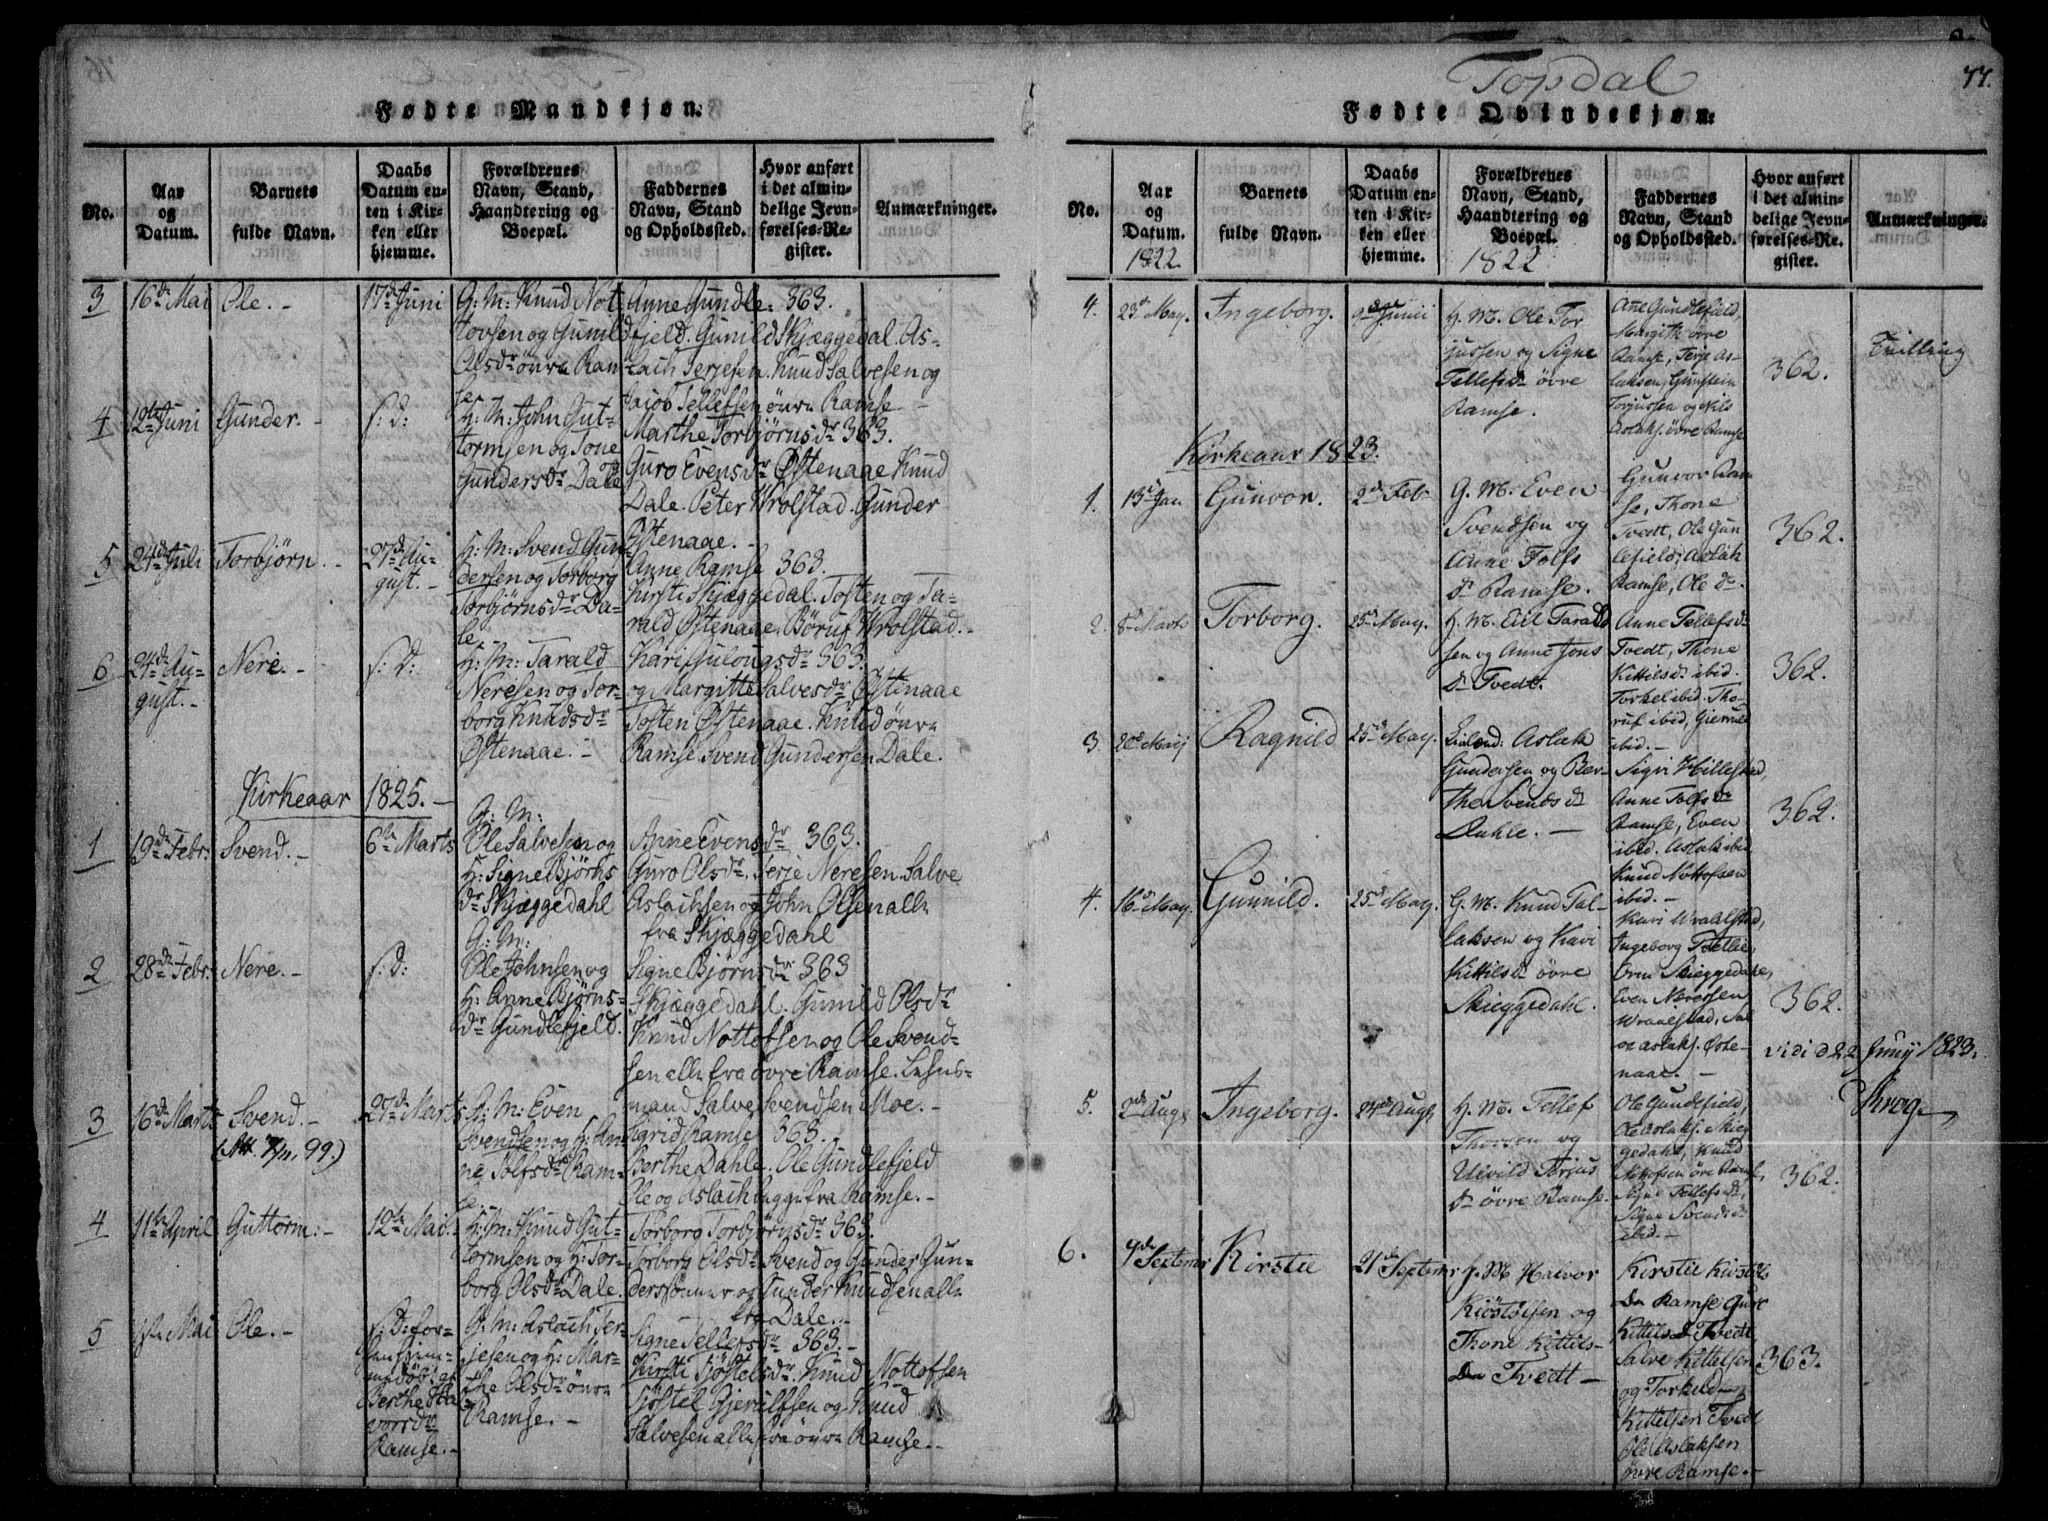 Fødte Mandkjøn.
No.
Aar og Datum.
Barnets fulde Navn.
Daabs Datum enten i Kirken eller hjemme.
Forældrenes Navn, Stand, Haandtering og Boepæl.
Faddernes Navn, Stand og Opholdssted.
Hvor anført i det almindelige Jevnførelses-Register.
Anmærkninger.
3
16de Mai
Ole. -
17de Juni
G: M: Knud Not-
tovsen og Gunild
Olsdr øvre Ram-
se
Anne Gundle: 363.
fjeld. Gunild Skjæggedal. As-
lach Terjesen. Knud Salvesen og
Jacob Tellefsen øvre Ramse
4
12te Juni
Gunder. -
s: d:
H: M: John Gut-
tormsen og Tone
Gundersdr Dale
Marthe Torbjørnsdr 363.
Guro Evensdr Østenaae Knud
Dale. Peter Wrolstad. Gunder
Østenaae. -
5
24de Juli
Torbjørn. -
27de Au-
gust. -
H: M: Svend Gun-
dersen og Torborg
Torbjørnsdr Da-
le
Anne Ramse 363.
Kirsti Skjæggedal. Tosten og Ta-
rald Østenaae. Børuf Wrolstad. -
6
24de Au-
gust. -
Nere. -
s: d:
H: M: Tarald
Neresen og Tor-
borg Knudsdr
Østenaae. -
Kari Gulougsdr 363.
og Margitte Salvesdr Østenaae
Tosten Østenaae. Knud øvre
Ramse. Svend Gundersen Dale.
Kirkeaar 1825. -
1
19de Febr:
Svend. -
6te Marts
G: M:
Ole Salvesen og
H: Signe Bjørns
dr Skjæggedahl
Anne Evensdr 363.
Guro Olsdr. Terje Neresen. Salve
Aslachsen og John Olsen alle
fra Skjæggedahl
2
28de Febr:
Nere. -
s: d:
G: M:
Ole Johnsen og
H: Anne Bjørns-
dr Gundlefjeld.
Signe Bjørnsdr 363
Skjæggedahl. Gunild Olsdr
Knud Nottofsen og Ole Svend-
sen alle fra øvre Ramse. Lehns-
mand Salve Svendsen Moe. -
3
16de Marts
Svend. -
27de Marts
G: M: Even
Svendsen og H: An-
ne Tolfsdr Ram-
se
Sigrid Ramse 363.
Berthe Dahle. Ole Gundlefjeld
Ole og Aslach begge fra Ramse. -
4
11te April
Guttorm: -
12te Mai. -
H: M: Knud Gut-
tormsen og H: Tor-
borg Olsdr Dale.
Torborg Torbjørnsdr 363.
Torborg Olsdr Svend og Gunder Gun-
derssønner og Gunder Knudsen alle
fra Dale. -
5
Mai
Ole. -
s: D: for-
Berthe Hal-
vorsdr
Ramse. -
G: M: Aslach Ter-
jesen og H: Mar-
the Olsdr øvre
Ramse. -
Signe Tellefsdr 363. -
Kirsti Kjøstelsdr. Knud Nottofsen
Kjøstel Gjerulfsen og Knud
Salvesen alle fra øvre Ramse. -
Topdal
77.
Fødte Qvindekjøn.
No.
Aar og Datum.
Barnets fulde Navn.
Daabs Datum enten i Kirken eller hjemme.
Forældrenes Navn, Stand, Haandtering og Boepæl.
Faddernes Navn, Stand og Opholdssted.
Hvor anført i det almindelige Jevnførelses-Register.
Anmærkninger.
1822
1822
4.
23de May.
Ingeborg.
9de Junii
H. M. Ole Tor
jussen og Signe
Tellefsdr øvre
Ramse.
Ane Gundlefield,
Margith øvre
Ramse, Terje As-
laksen, Gunstein
Torjussen og Nils
Aslaks. øvre Ramse
362.
Tvilling
Kirkeaar 1823.
1.
13de Jan
Gunvor.
2de Feb.
G. M. Even
Svendsen og
Anne Tolfs
dr Ramse.
Gunvor Ram
se, Thone
Tvedt, Ole Gun
lefield, Aslak
Ramse, Ole do.
362.
2.
8de Marts
Torborg.
25de May.
H. M. Eil Tarald
sen og Anne Jons
dr Tvedt.
Anne Tellefsdr
Tvedt, Thone
Kittilsdr ibid.
Torkel ibid. Tho-
ruf ibid, Gierulf
ibid. -
362.
3.
Ragnild
25de May.
Aslak
Gundersen og Ber-
the Svendsdr
Dahle. -
Sigri Hillestad,
Anne Tolfsdr
Ramse, Even
ibid. Aslak ibid
Knud Nottofsen
ibid. -
362.
4.
16de May.
Gunnild.
25de May.
G. M. Knud Tal-
laksen og Kari
Kittilsdr øvre
Skieggedahl.
Kari Wraalstad,
Ingeborg
Orm Skieggedahl,
Even Neresen
Wraalstad, Sal
ve Aslaks. Øste-
naae. -
362.
Vidi d 22 Junij 1823.
Krog.
5.
2de Aug.
Ingeborg.
24de Aug.
H. M. Tellef
Thorsen og
Torjus
dr øvre Ramse.
Ole Gundefield,
Ole Aslaks. Skieg
gedahl, Knud
Nottofsen øvre Ramse,
Signe Tellefsdr,
Signe Svendsdr
ibid. -
362.
6.
9de Septemr
Kirstie
21de Septemr
H. M. Halvor
Kiøstølsen og
Thone Kittils-
dr Tvedt -
Kirstie Kiøstils
dr Ramse, Guro
Kittilsdr Tvedt,
Salve Kittelsen
og Torkild
Kittelsen Tvedt
Ole Aslaksen
øvre Ramse. -
363.